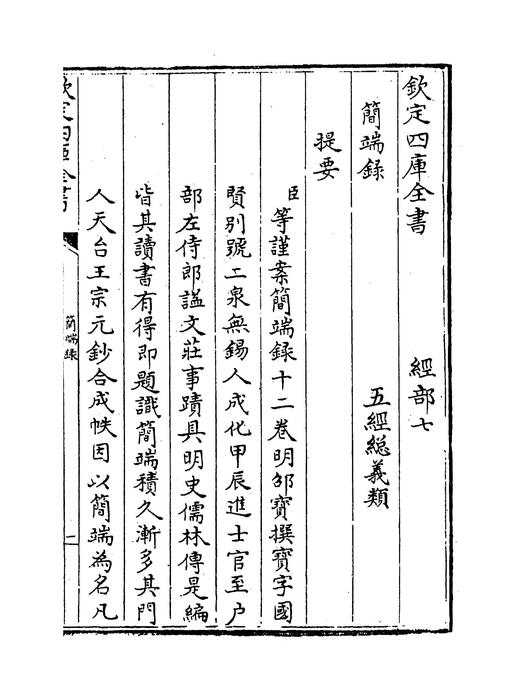 欽定四庫全書　經部七
簡端録　五經總義類
提要
臣等謹案簡端録十二卷明邵寶撰寶字國
賢別號二泉無錫人成化甲辰進士官至户
部左侍郎謚文莊事蹟具明史儒林傳是編
皆其讀書有得即題識簡端積久漸多其門
人天台王宗元鈔合成帙因以簡端為名凡
欽定四庫全書
簡端録
一